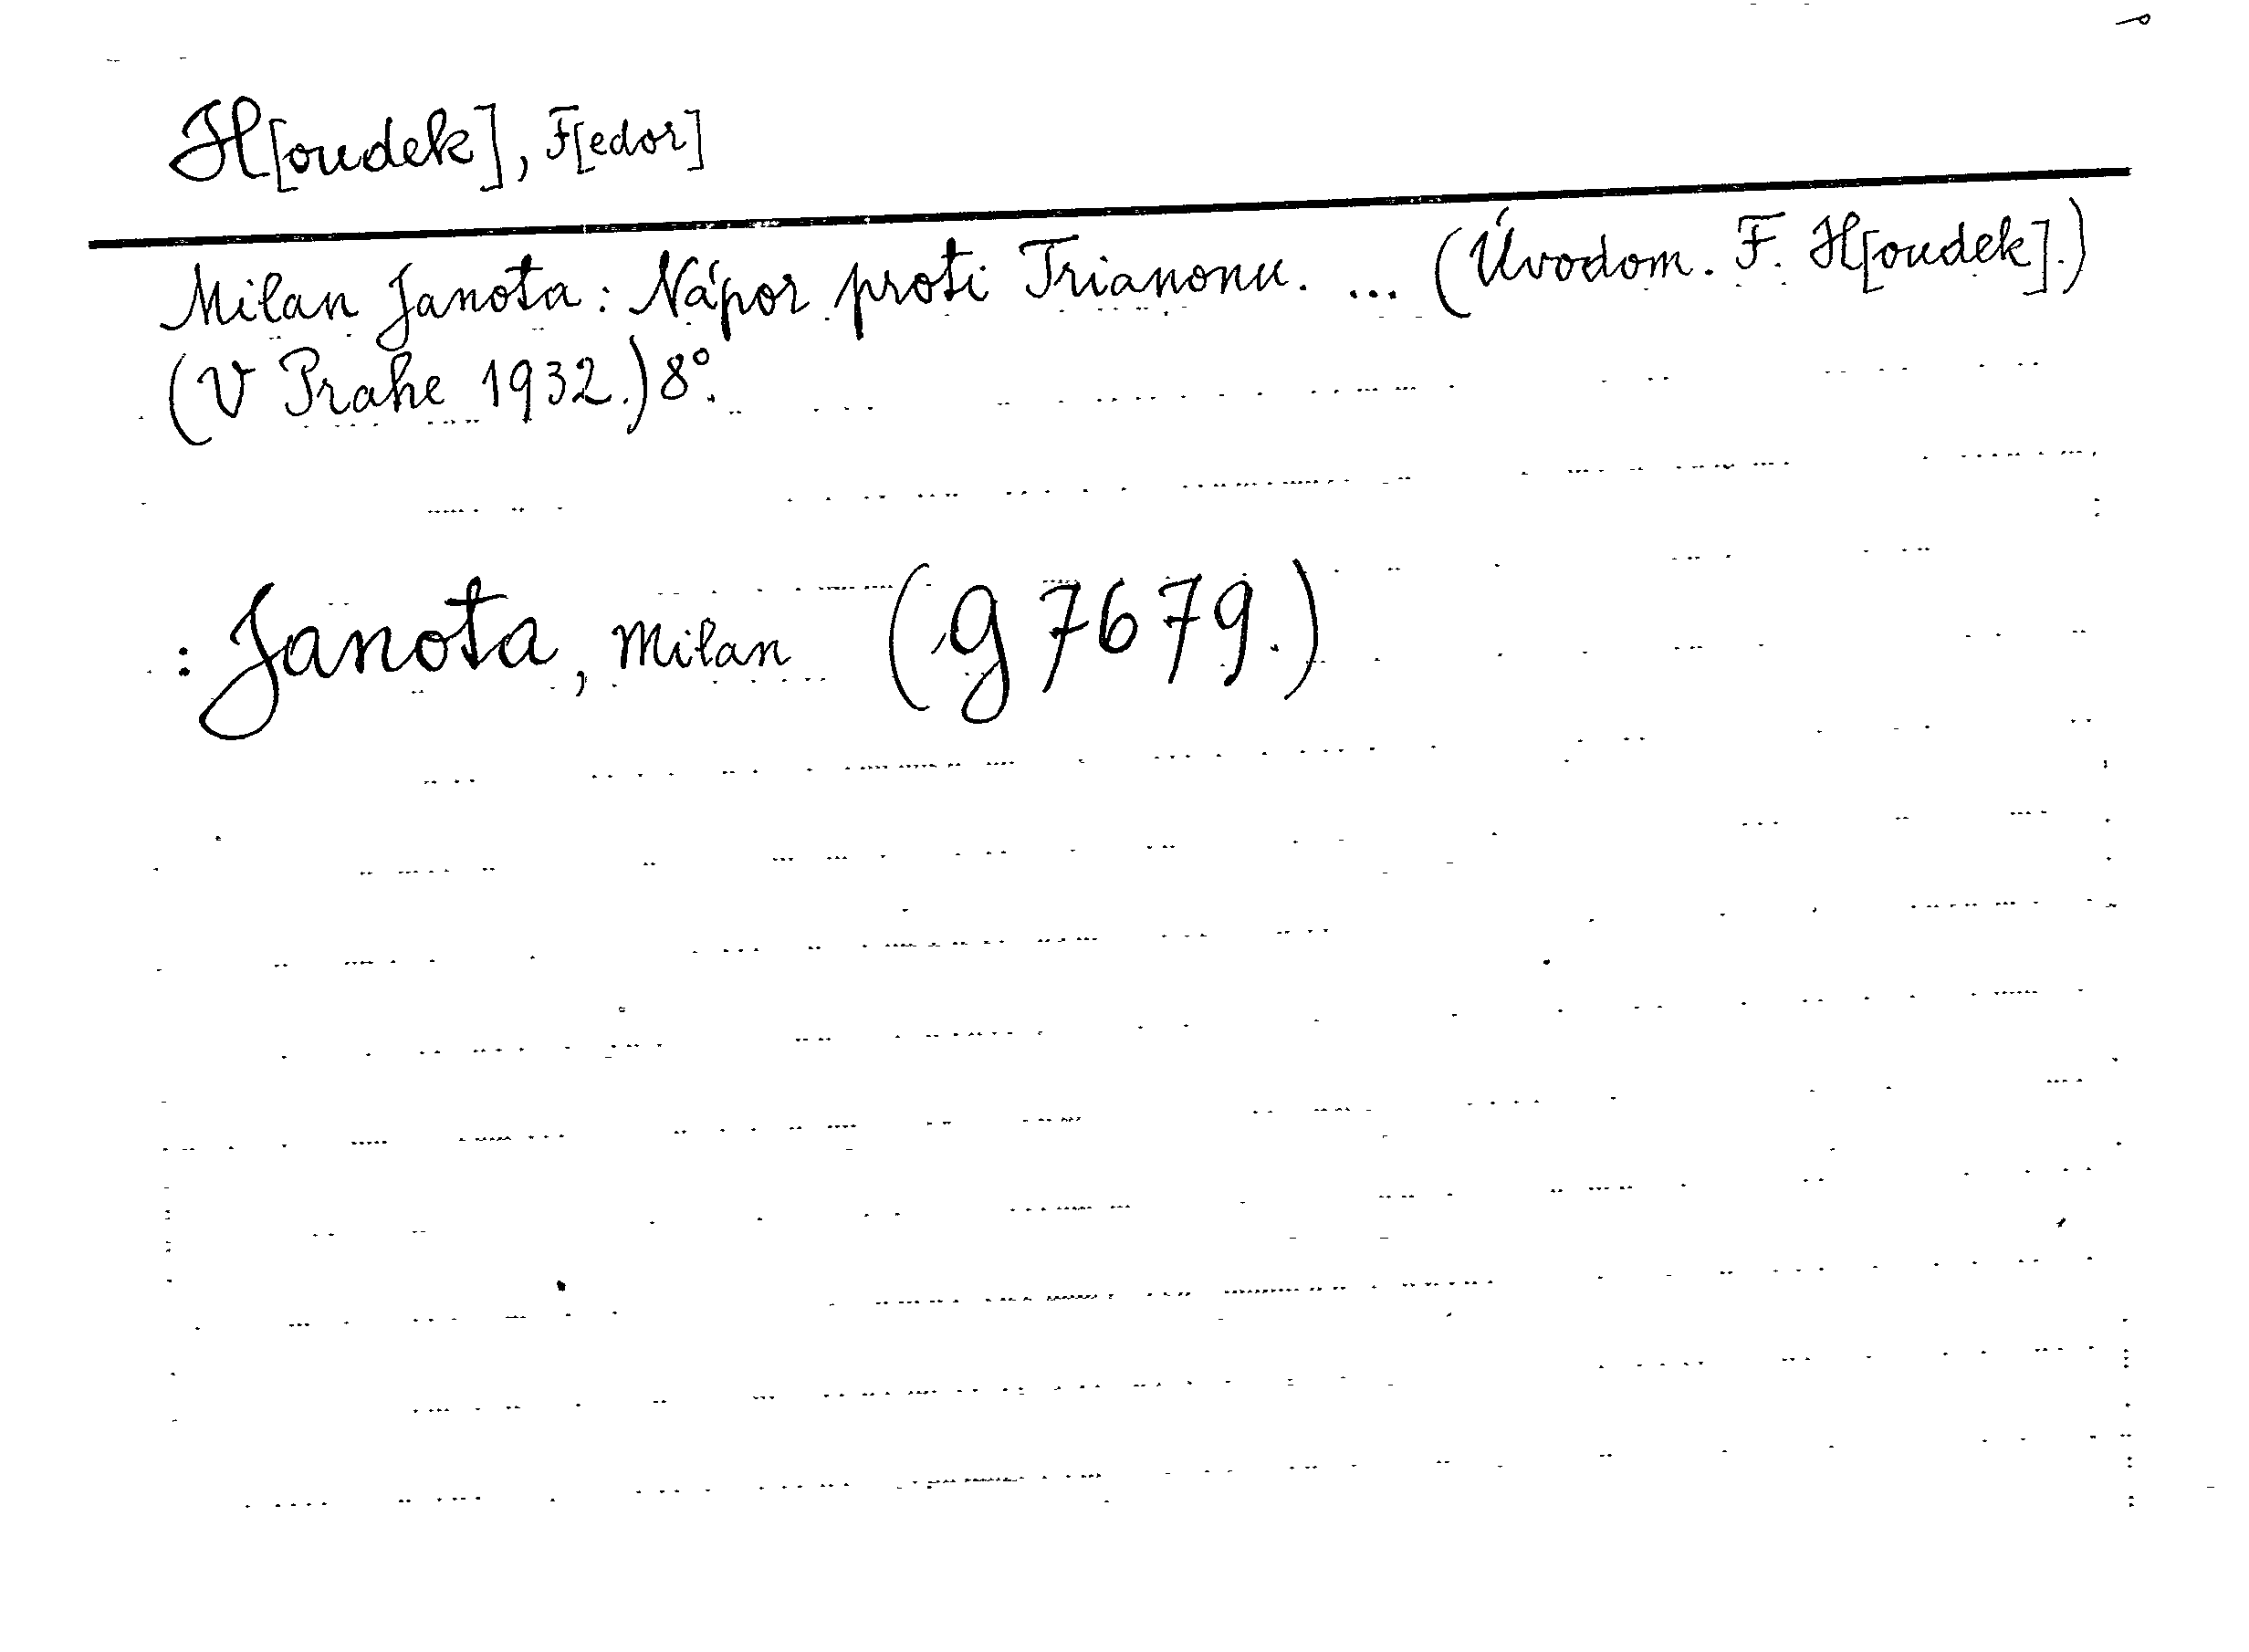 H[oudek], F[edor]
Milan Janota: Nápor proti Trianonu. ... (Úvodom. F. H[oudek].)
(V Prahe 1932.) 8°.
: Janota, Milan (g 7679.)